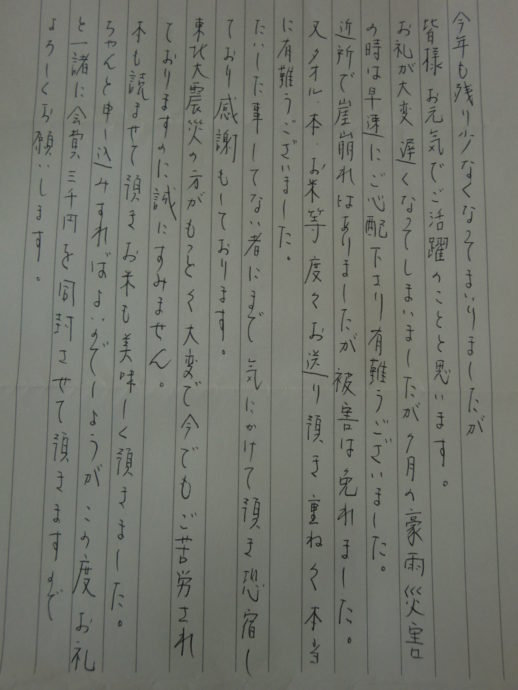 今年も残り少なくなってまいりましたが
皆様お元気でご活躍のことと思います。
お礼が大変遅くなってしまいましたが7月の豪雨災害
の時は早速にご心配下さり有難うございました。
近所で崖崩れはありましたが被害は免れました。
又タオル・本・お米等度々お送り頂き重ね々本当
に有難うございました。
たいした事してない者にまで気にかけて頂き恐宿し
ており感謝もしております。
東北大震災の方がもっと々大変で今でもご苦労され
ておりますのに誠にすみません。
本も読ませて頂きお米も美味しく頂きました。
ちゃんと申し込みすればよいのでしょうがこの度お礼
と一諸に会費三千円を同封させて頂きますので
よろしくお願いします。